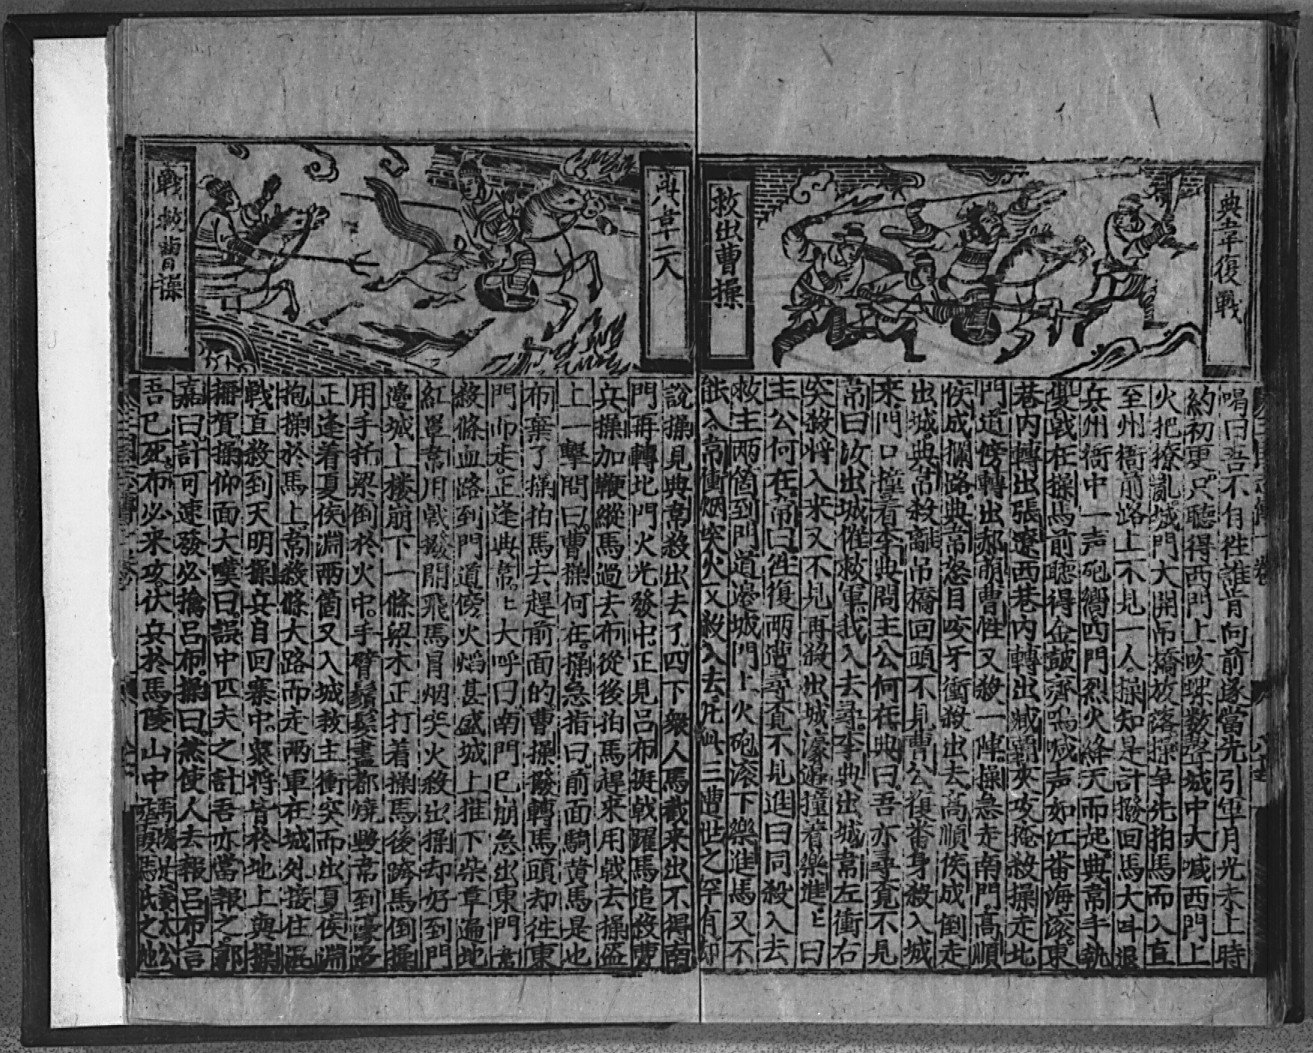 典韋復戰
救出曹操
喝曰吾不自徃誰肯向前遂當先引軍月光未上時
約初更只聽得西門上吹螺数聲城中大喊西門上
火把撩亂城門大開吊橋放落操争先拍馬而入直
至州衙前路上不見一人操知是計撥回馬大叫退
兵州衙中一声砲嚮四門烈火絳天而起典韋手執
雙戟在操馬前聽得金皷齊鳴喊声如江番海滚東
巷内轉出張遼西巷内轉出臧霸夾攻掩殺操走北
門道傍轉出郝萌曹性又殺一陣操急走南門高順
侯成攔路典韋怒目咬牙衝殺出去高順侯成倒走
出城典韋殺離吊橋回頭不見曹公復番身殺入城
來門口撞着李典問主公何在典曰吾亦尋覓不見
韋曰汝出城催救軍我入去尋李典出城韋左衝右
突殺將入來又不見再殺出城濠邉撞着樂進〻曰
主公何在韋曰徃復两遭尋覓不見進曰同殺入去
救主两箇到門道邊城門上火砲滚下樂進馬又不
能入韋衝烟突火又殺入去凡此三遭世之罕有却
典韋二人
戰救曹操
說操見典韋殺出去了四下衆人馬截来出不得南
門再轉北門火光發中正見呂布挺戟躍馬追殺曹
兵操加鞭縱馬過去布從後拍馬趕來用戟去操盔
上一擊問曰曹操何在操急指曰前面騎黄馬是也
布棄了操拍馬去趕前面的曹操撥轉馬頭却往東
門而走正逢典韋〻大呼曰南門已崩急出東門韋
殺條血路到門道傍火焰甚盛城上推下柴草遍地
紅罩韋用戟撥開飛馬冒烟突火殺出操却好到門
邊城上樓崩下一條梁木正打着操馬後胯馬倒操
用手托梁倒於火中手臂鬚髮盡都燒毀韋到濠邉
正逢着夏侯淵两箇又入城救主衝突而出夏侯淵
抱操於馬上韋殺條大路而走两軍在城外接住混
戰直殺到天明操兵自回寨中衆將皆於地上與操
拜賀操仰面大嘆曰誤中匹夫之計吾亦當報之郭
嘉曰計可速發必擒呂布操曰然使人去報呂布言
吾已死布必来攻伏兵於馬陵山中